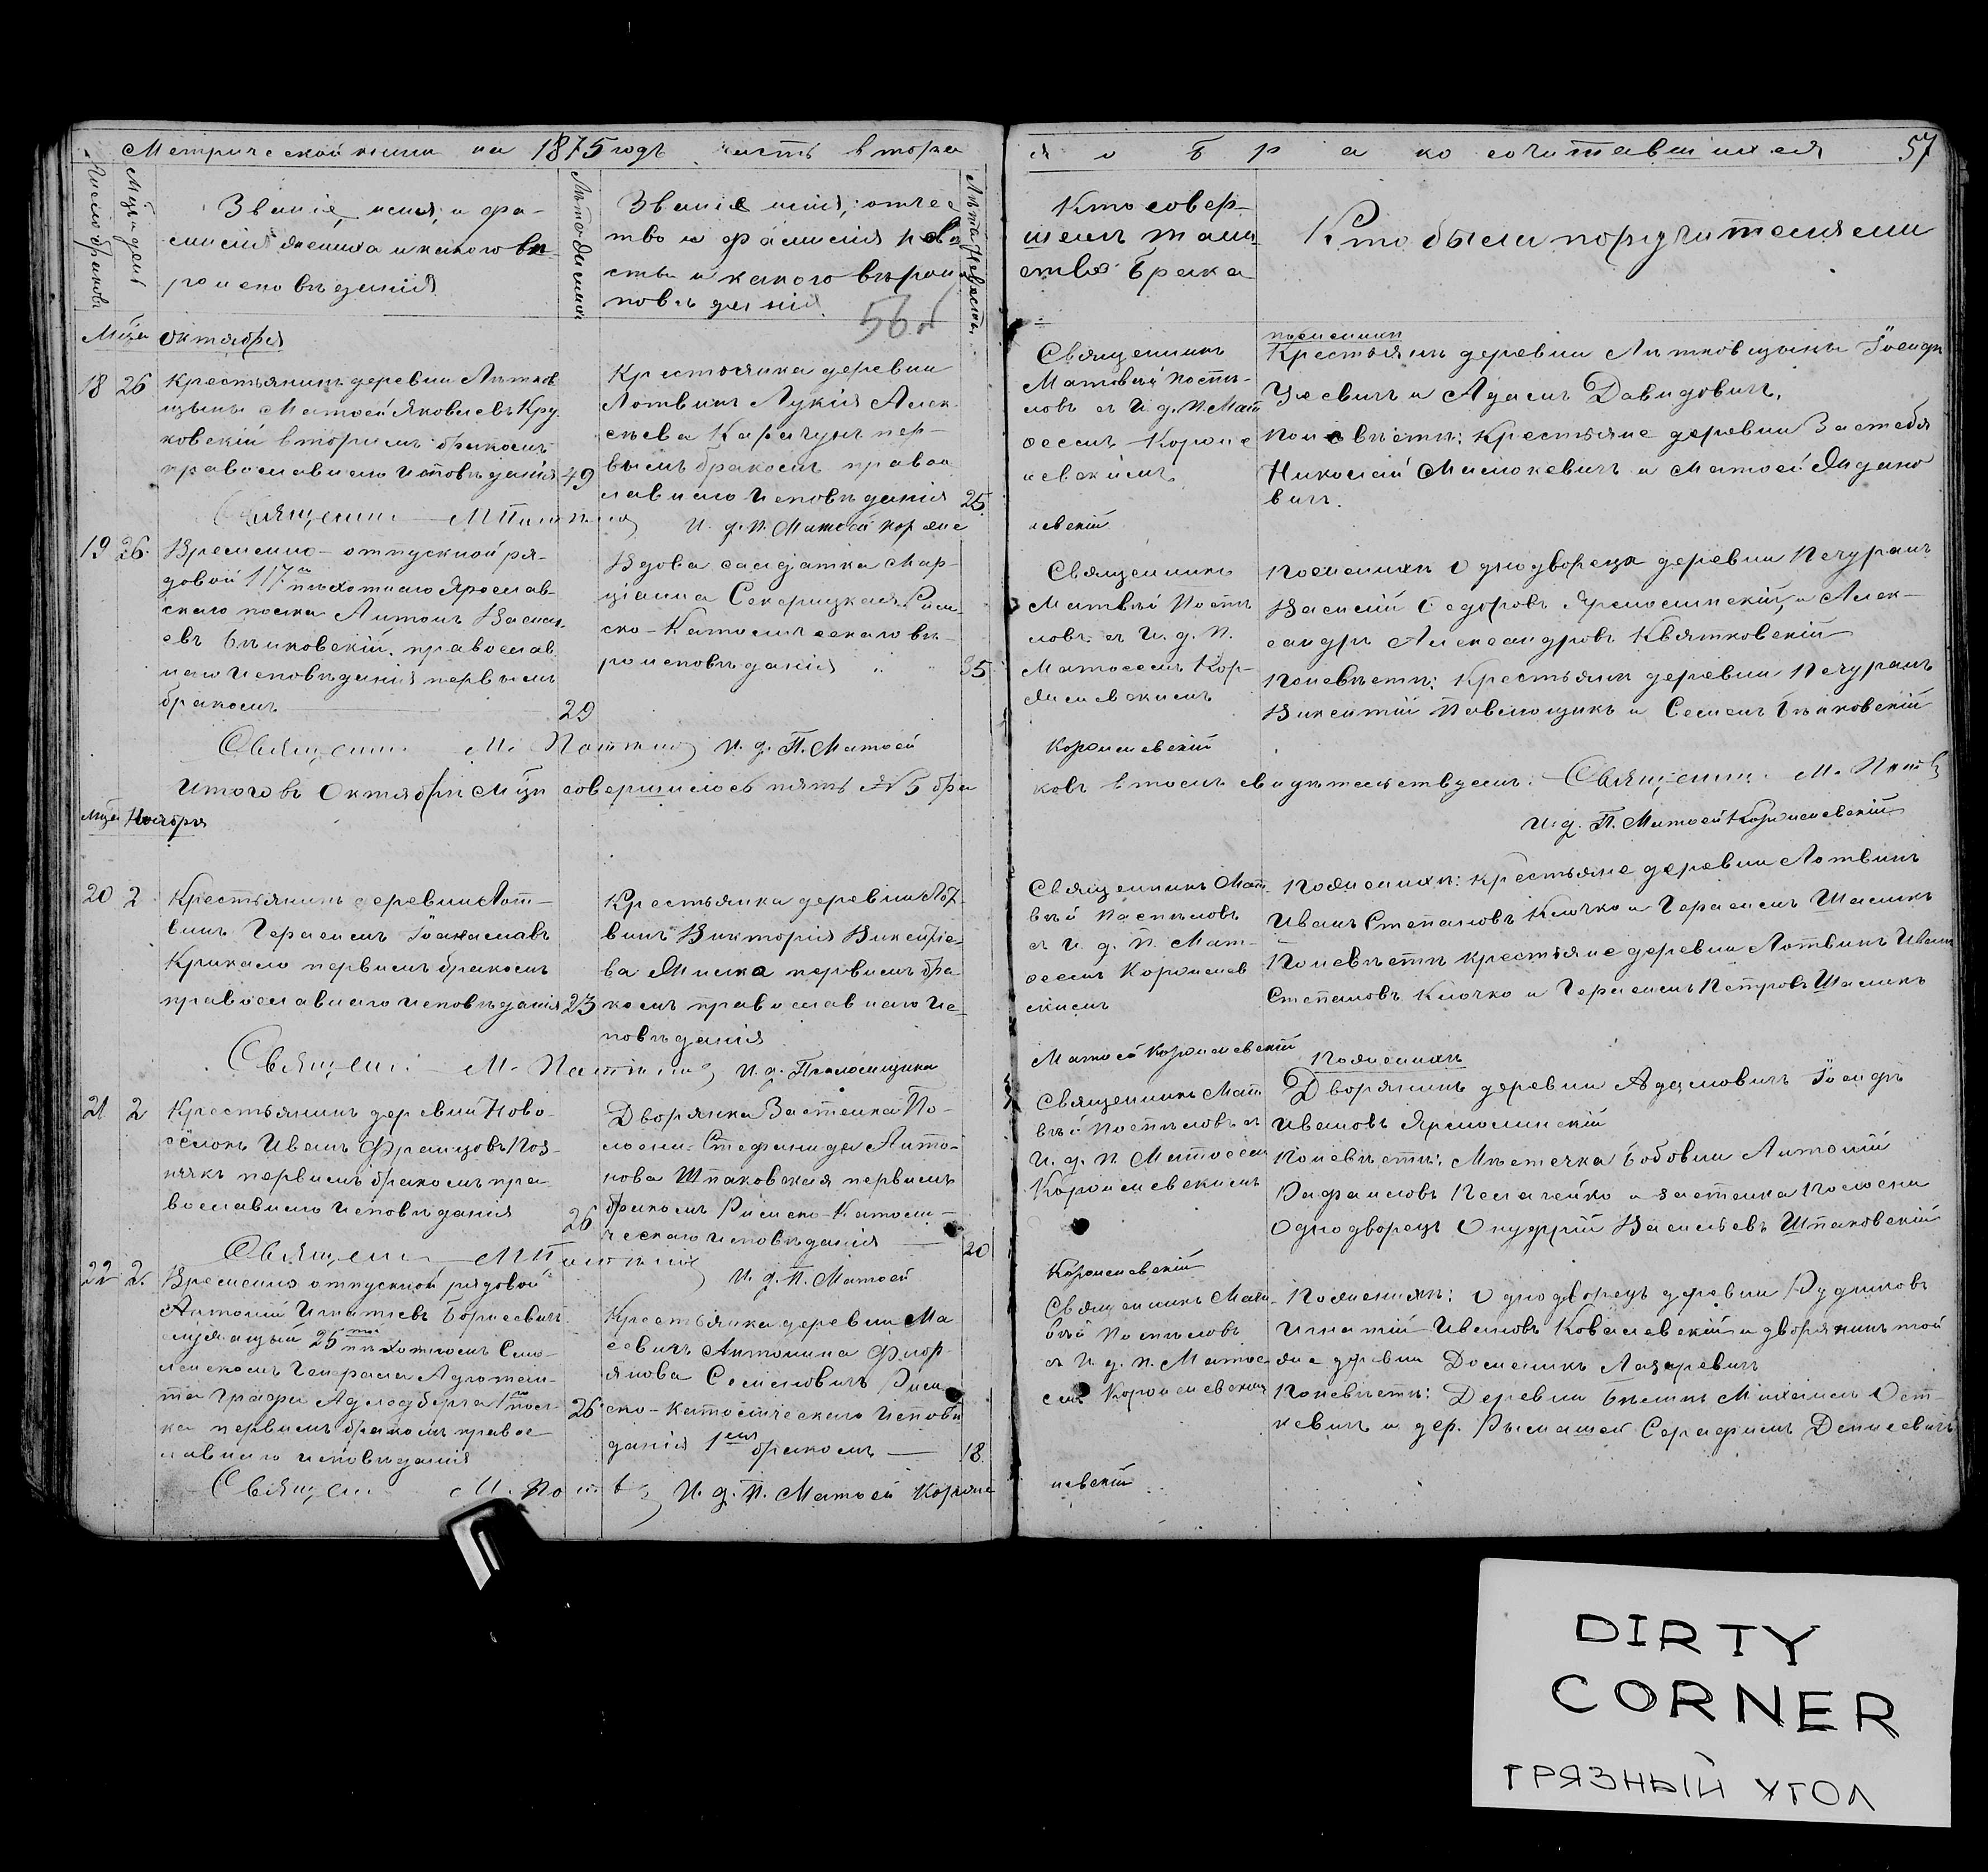 Метрической книги на 1875 годъ часть втора
я о бракосочитавшихся 57
Число браковъ
Мцъ и день
Званіе, имя, и фа-
милія жениха и какого вѣ-
роисповѣданія
Лѣта жениха
Званіе имя, отчес
тво и фамилія невѣ
сты и какого вѣроис
повѣданія.
56об
Лѣта Невесты
Кто совер-
шилъ таин
ство брака
Кто были поручителями
Мца Октября
18 26 Крестьянинъ деревни Лѣтков
щыны Матѳей Яковлевъ Кру
ковскій вторымъ бракомъ
православнаго исповѣданія 49
Крестьянка деревни
Лотвинъ Лукія Алек-
сѣева Карачунъ пер-
вымъ бракомъ право
славнаго исповѣданія 25.
Священникъ
Матвѣй Постѣ-
ловъ съ И. д. П. Мат
ѳеемъ Короле
невскимъ
по женихѣ
Крестьянъ деревни Лѣтковщыны Іосифъ
и Адамъ Давидовичъ,
По невѣстѣ: Крестьяне деревни
Николай Милюкевичъ и Матѳей
вичъ.
Священникъ М П И. д. П. Матѳей
левскій
19 26. Временно-отпускной ря-
довой 117го пѣхотнаго Ярослав-
скаго полка Антонъ Васил
евъ Быковскій православ
наго исповѣданія первымъ
бракомъ 29
Вдова салдатка Мар-
ціанна Секерицкая Рим-
ско-Католическаго вѣ-
роисповѣданія 35
Священникъ
Матвѣй Постѣ
ловъ съ И. д. П.
Матѳеемъ Кор-
По женихѣ Однодворецъ деревни Печуранъ
Василій Ѳедоровъ Ярмолинскій, и Алек-
сандръ Александровъ Квятковскій
По невѣстѣ: Крестьянъ деревни Печуранъ
Викентій Павлющикъ и Семенъ Быковскій
Священникъ М. И. д. П. Матѳей
Итого въ Октябрѣ Мцѣ совершилось пять № 5 бра
ковъ въ томъ свидѣтельствуемъ: Священникъ М.
И. д. П. Матѳей
Мца Ноября
20 2 Крестьянинъ деревни Лот-
винъ Герасимъ
Крикало первымъ бракомъ
православнаго исповѣданія 23
Крестьянка деревни Лот
винъ Викторія Викентіе-
ва первымъ бра
комъ православнаго ис-
повѣданія
Священникъ Мат
вѣй Постѣловъ
съ И. д. П. Мат-
ѳеемъ
скимъ
По женихѣ: Крестьяне деревни Лотвинъ
Иванъ Степановъ Клочко и Герасимъ
По невѣстѣ крестьяне деревни Лотвинъ Иванъ
Степановъ Клочко и Герасимъ Петровъ
Священ: М. И. д. Псаломщика
Матѳей
21 2 Крестьянинъ деревни Ново-
сёлокъ Иванъ Францовъ Поз-
някъ первымъ бракомъ пра-
вославнаго исповѣданія 26
Дворянка Застенка По-
Стефанида Анто-
нова Шпаковская первымъ
бракомъ Римско-Католи-
ческаго исповѣданія 20
Священникъ Мат
вѣй Постѣловъ съ
И. д. П. Матѳеемъ
По женихѣ
Дворянинъ деревни Адамовичъ Іосифъ
Ивановъ Ярмолинскій
По невѣстѣ: Мѣстечка Бобовни Антоній
Рафаиловъ и застенка
Однодворецъ Онуфрій Васильевъ Шпаковскій
Священ М И. д. П. Матѳей
22 2. Временно отпускной рядовой
Антоній Игнатіевъ Борисевичъ
служащый 25 пѣхотномъ Смо-
ленскомъ Генерала Адютан-
та Графа Адлодберга 1го пол-
ка первымъ бракомъ право-
славнаго исповѣданія 26
Крестьянка деревни Ма
севичъ Антонина Флор
янова Семеновичъ Рим
ско-католическаго исповѣ
данія 1ымъ бракомъ 18.
Священникъ Мат
вѣй Постѣловъ
съ И. д. П. Матѳе
По женихѣ: Однодворецъ деревни
Игнатій Ивановъ Ковалевскій и дворянинъ той
же деревни Доминикъ Лазаревичъ
По невѣстѣ: Деревни Михаилъ Ост-
кевичъ и дер. Серафимъ Денисевичъ
Священ М. И. д. П. Матѳей
левскій
DIRTY
CORNER
ГРЯЗНЫЙ УГОЛ